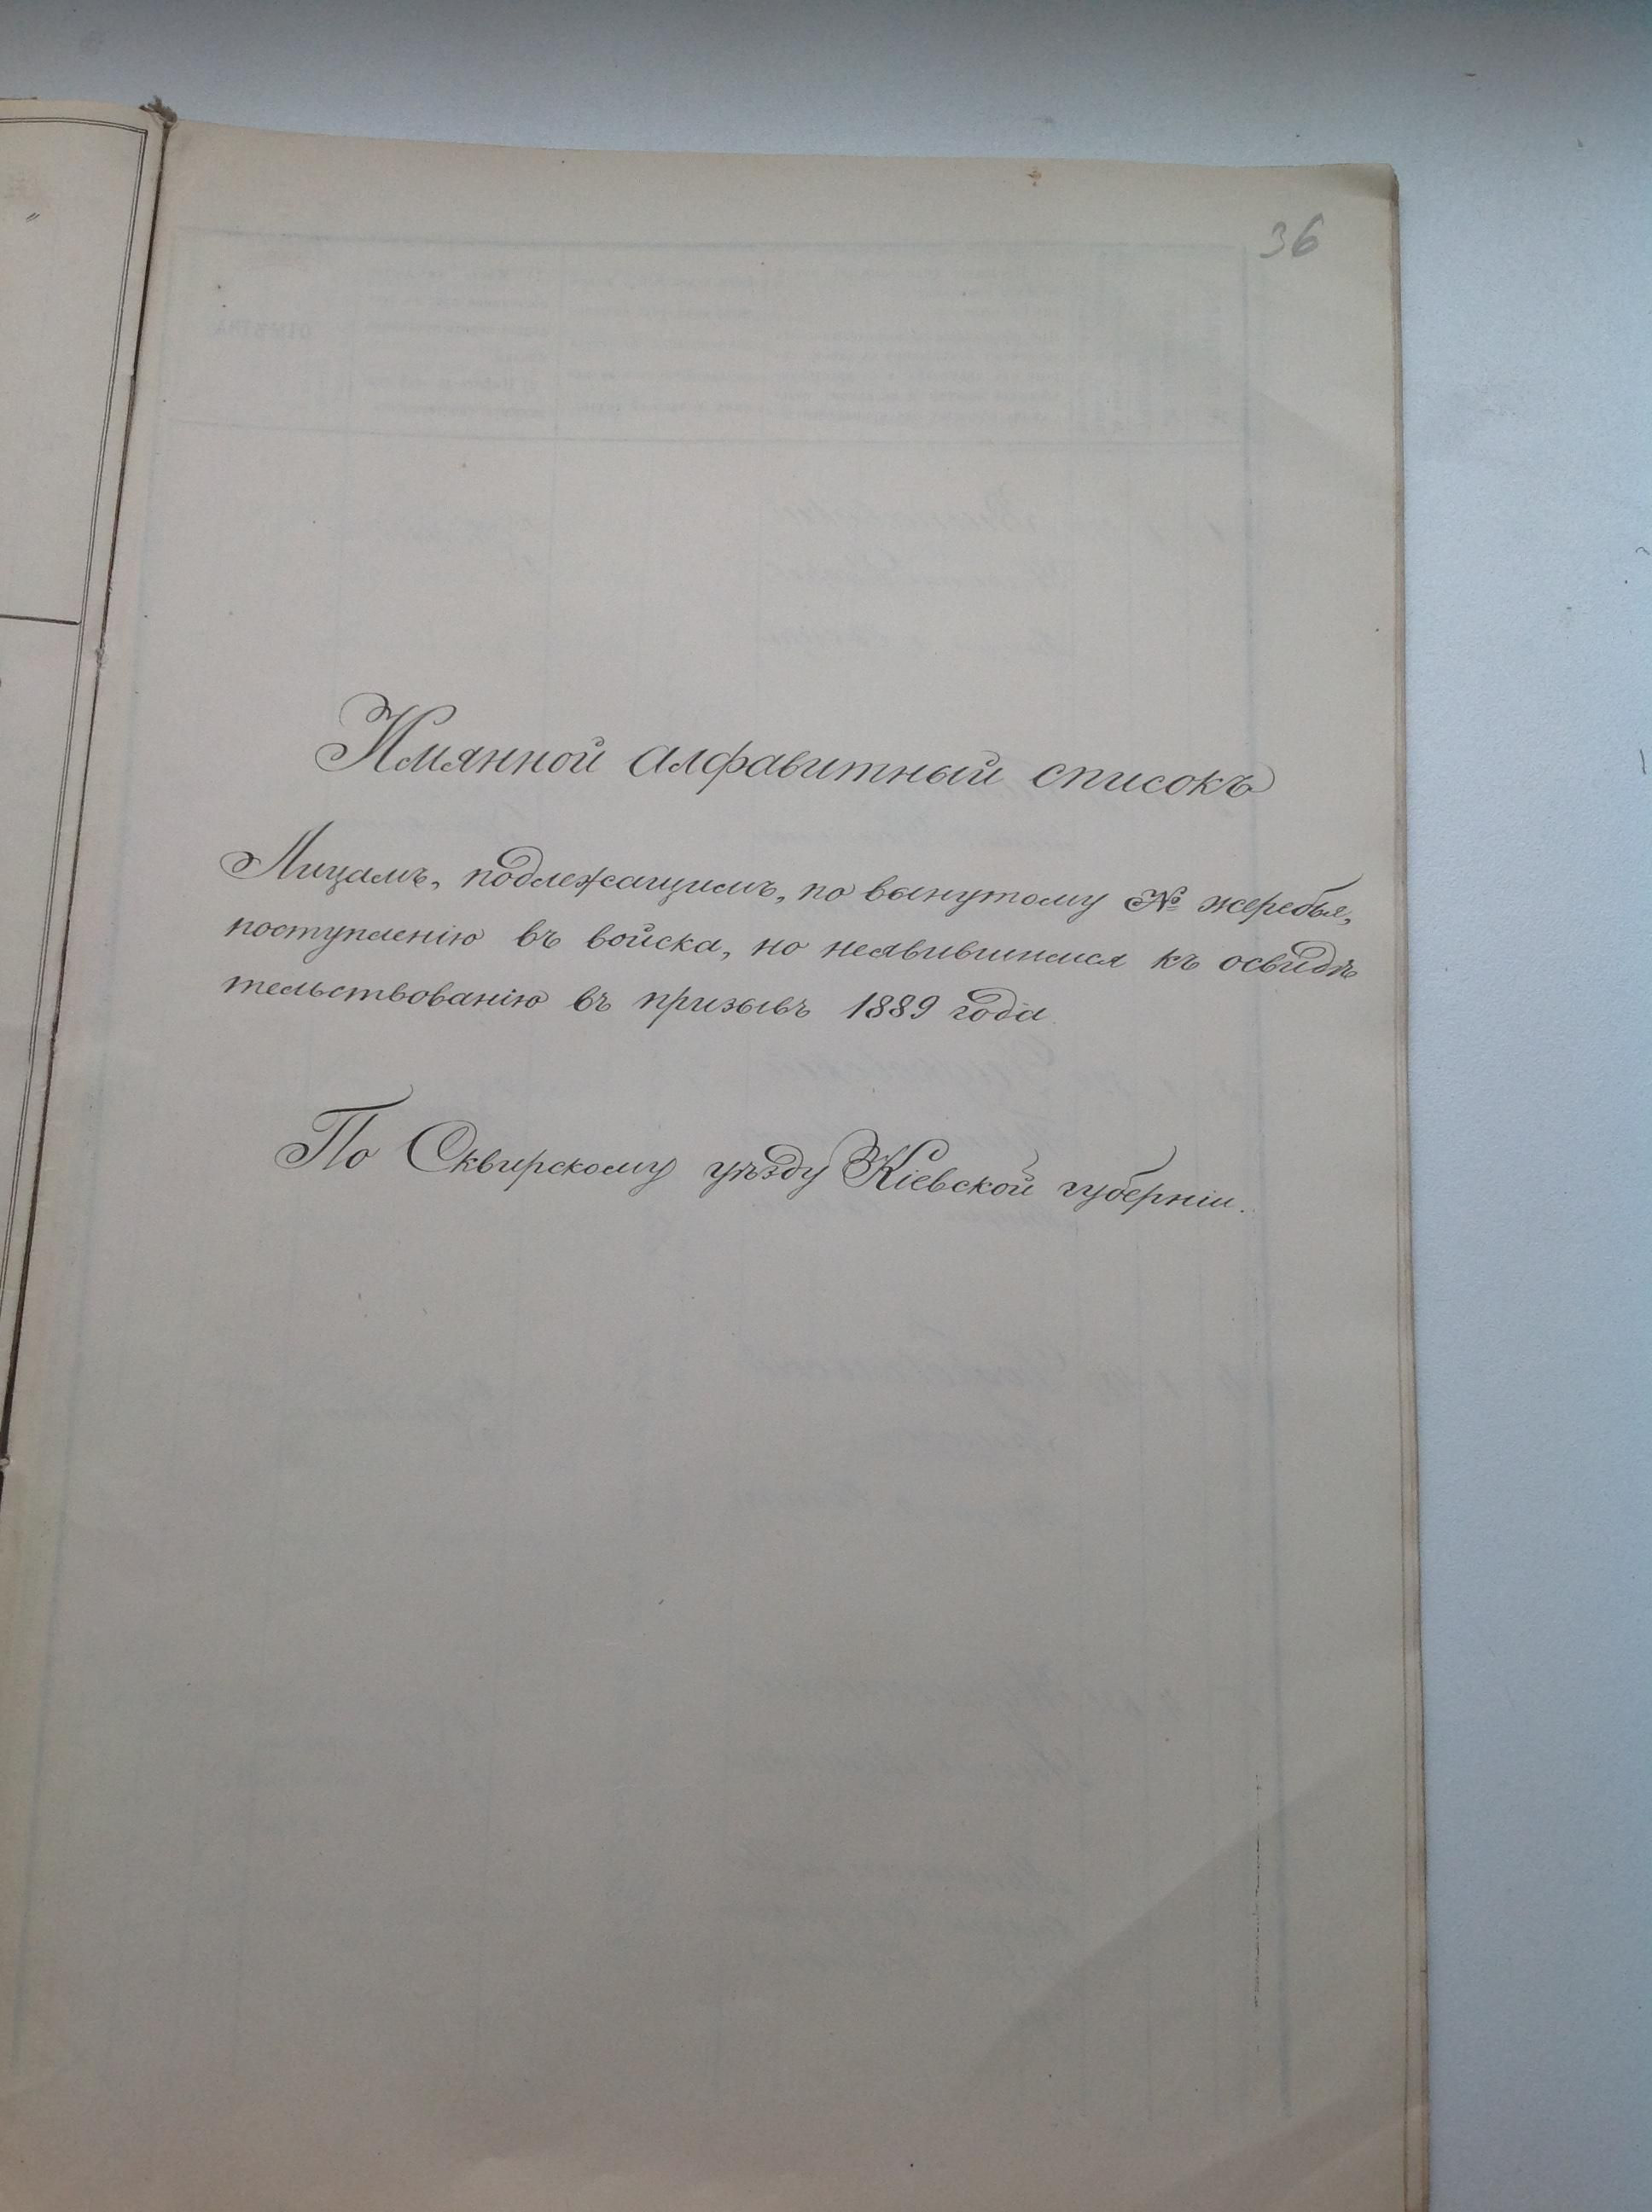 36
Имянной алфавитный списокъ
Лицамъ, подлежащимъ, по вынутому № жеребья,
поступленію въ войска, но неявившимся къ освидѣ
тельствованію въ призывъ 1889 года.
По Сквирскому уѣзду Кіевской губерніи.